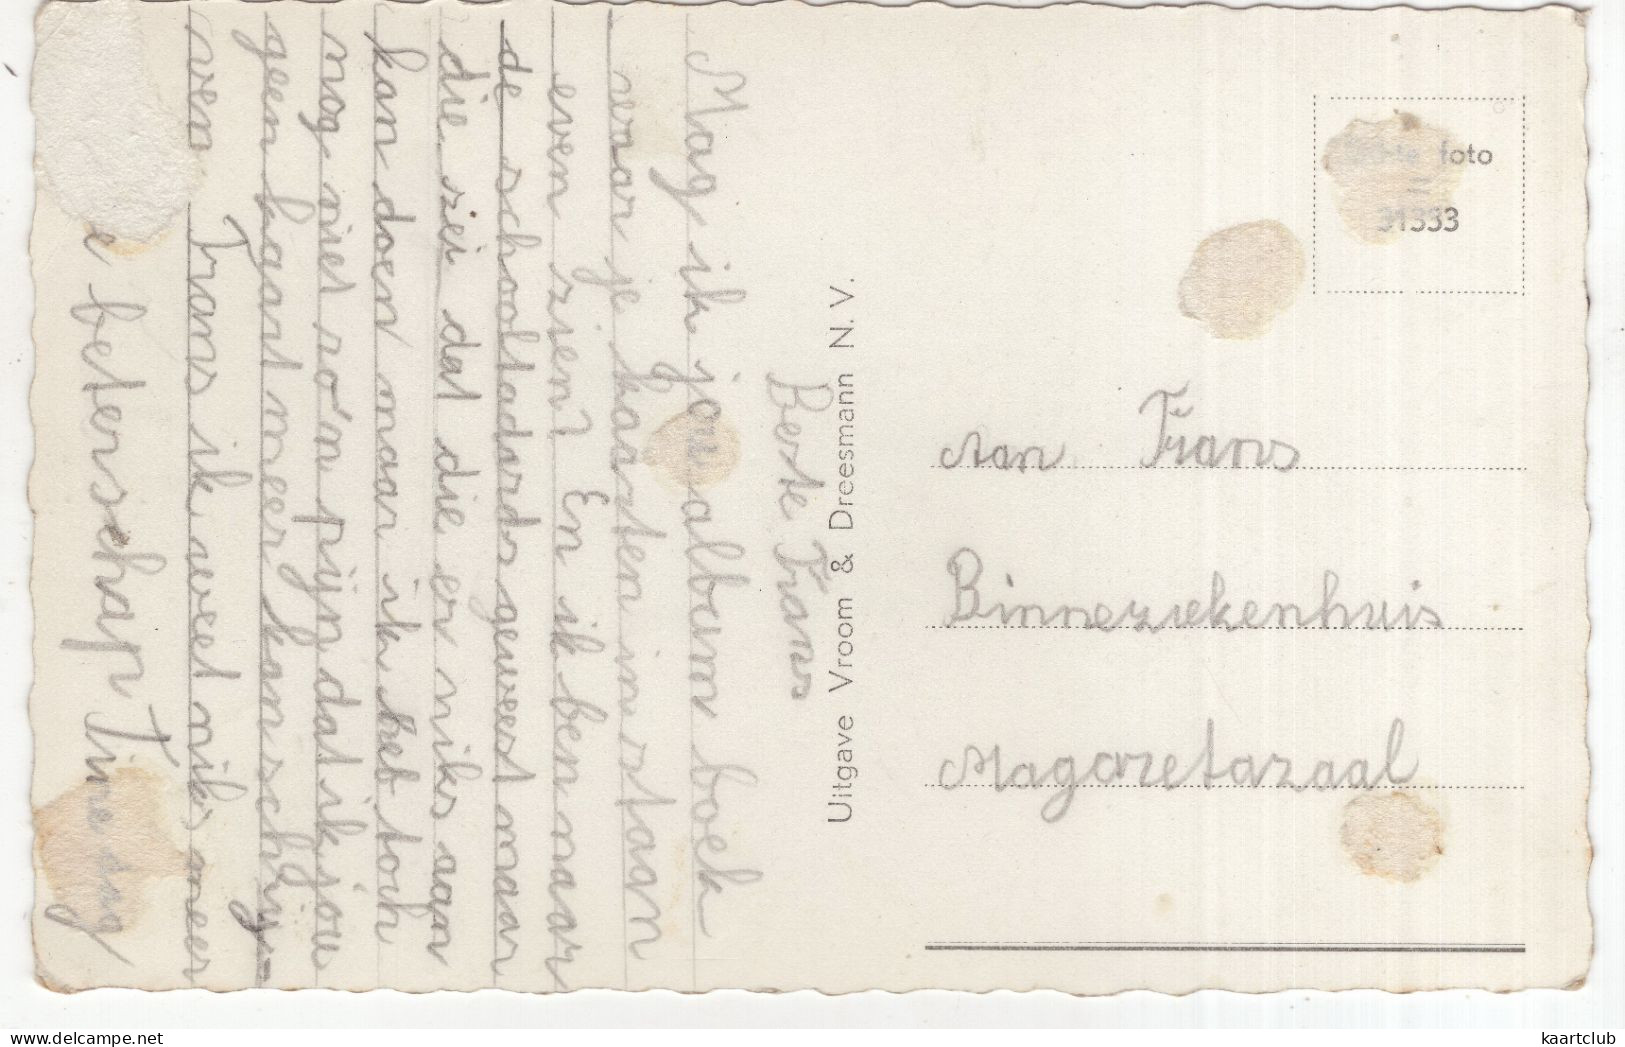 Beste Frans
Mag ik jouw album boek
waar je kaarten in staan
even zien? En ik ben naar
de schooltandards geweest maar
die zei dat die er niks aan
kan doen maar ik heb toch
nog niet zo'n pijn dat ik jou
geen kaart meer kan schrij-
ven. Frans ik weet niks meer
beterschap Tine dag
Uitgave Vroom & Dreesmann N. V.
foto
31333
Aan Frans
Binneziekenhuis
Magaretazaal
kaartclub